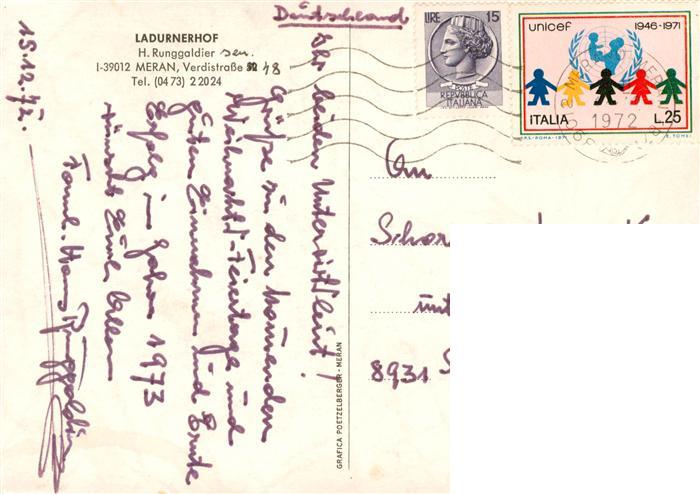 Deutschland
LADURNERHOF
H. Runggaldier sen.
I-39012 MERAN, Verdistraße 48
Tel. (0473) 22024
15.12.72.
Ihr lieben Unterwirtleut!
Grüße zu den kommenden
Weihnachts-Feiertage und
guten Einnahmen und Ernte
Erfolg im Jahre 1973
wünscht Euch allen
Faml. Hans Runggaldier
GRAFICA POETZELBERGER - MERAN
LIRE 15
POSTE
REPUBBLICA
ITALIANA
unicef 1946-1971
ITALIA L.25
1972
An
8931